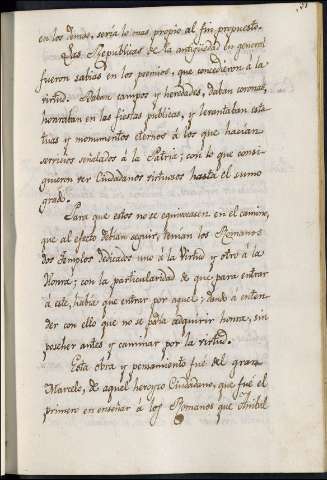 en los demas, sería lo mas propio al fin propuesto.
Las Republicas de la antigüedad en general
fueron sabias en los premios, que concedieron á la
virtud. Daban campos y heredades, daban coronas,
honraban en las fiestas publicas, y levantaban esta
tuas y monumentos eternos á los que hacian
servicios señalados á la Patria; con lo que consi-
guieron ver Ciudadanos virtuosos hasta el sumo
grado.
Para que estos no se equivocasen en el camino,
que al efecto debían seguir, tenian los Romanos
dos Templos dedicados uno á la Virtud y otro á la
Honra; con la particularidad de que para entrar
á este, había que entrar por aquel; dando á enten-
der con ello que no se podia adquirir honra, sin
poseher antes y caminar por la virtud.
Esta obra y pensamiento fué del gran
Marcelo, de aquel heroyco Ciudadano, que fué el
primero en enseñar á los Romanos que Anibal